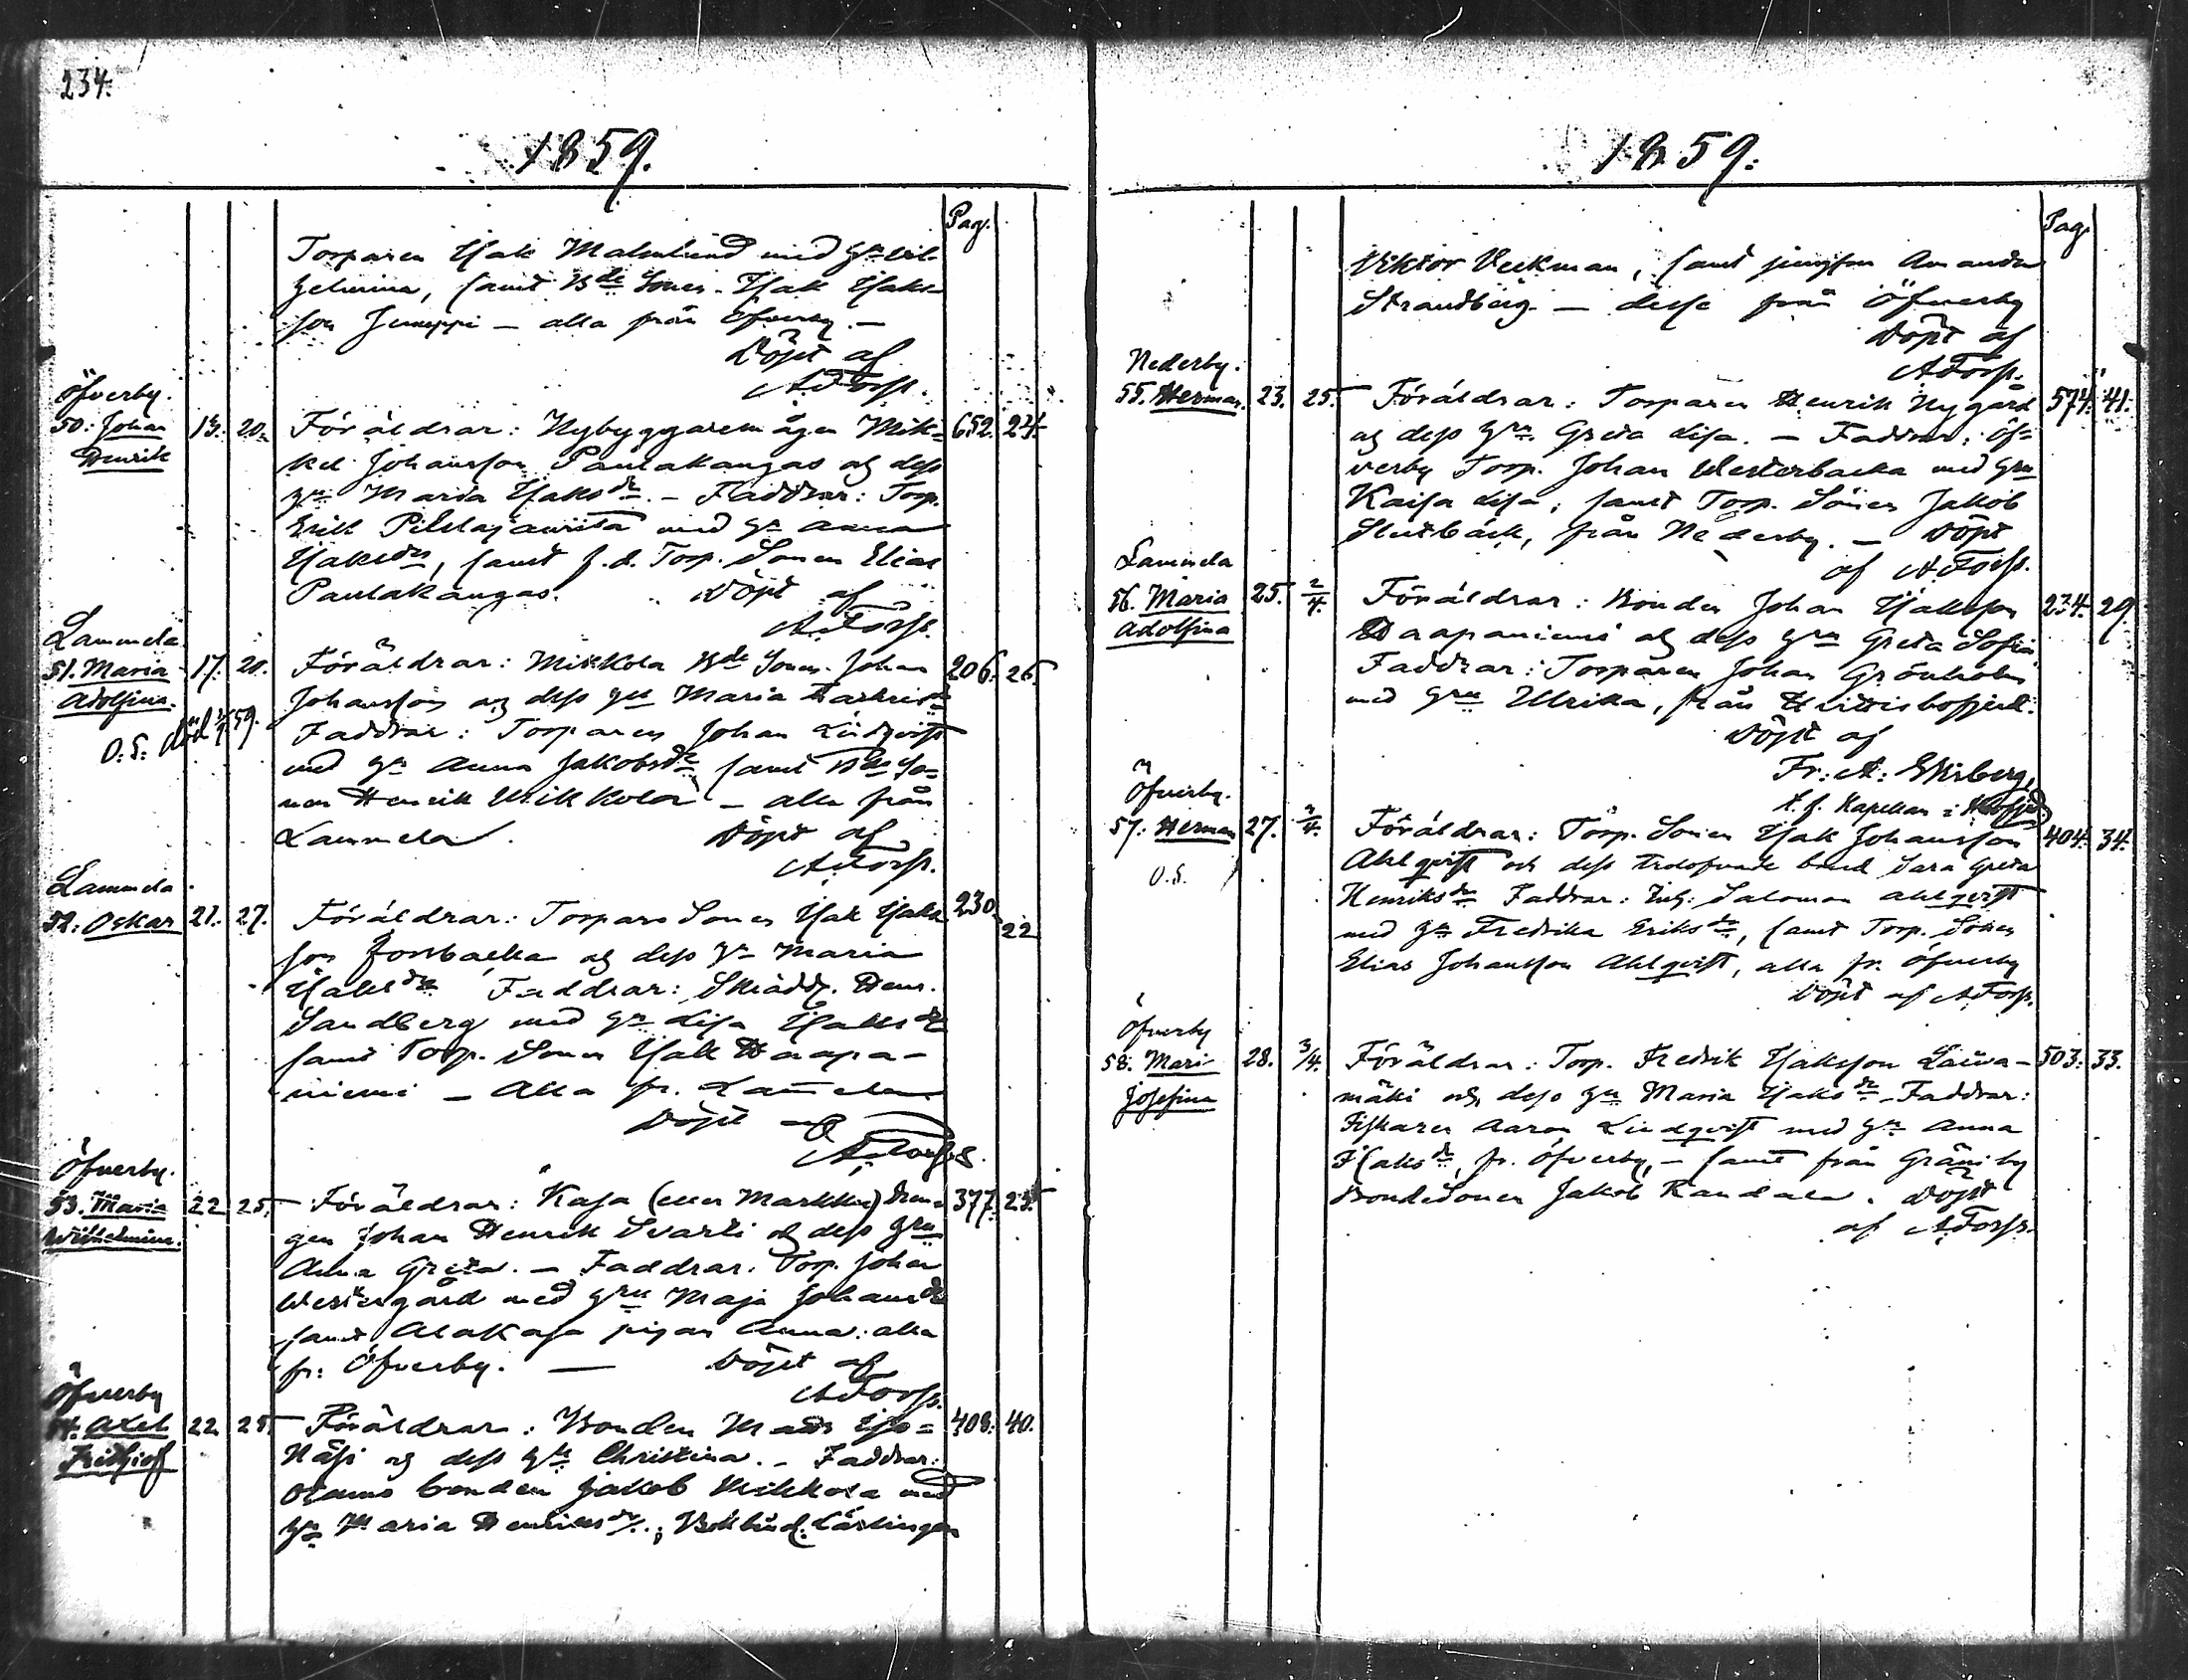 234.
1859.
Pag.
Torparen Isak Malmlund med h:u Vil-
helmina, samt B:de Sonen Isak Isaks-
son Jumppi — alla från Öfverby. —
Döpt af
A. Forss.
Öfverby.
50. Johan 13. 20. Föräldrar: Nybyggaremågen Mik- 652. 24.
Henrik
kel Johansson Pautakangas och dess
h:u Maria Isaks d:r. — Faddrar: Torp.
Erik med h:u Anna
Isaks d:r, samt f.d. Torp. Sonen Elias
Pautakangas. Döpt af
A. Forss.
Lammela
51. Maria 17. 20. Föräldrar: Mikkola B:de Sonen Johan 206. 26.
Adolfina.
Johansson och dess h:u Maria
O.S. död 59.
Faddrar: Torparen Johan Lindqvist
med h:u Anna Jakobs d:r, samt B:de So-
nen Henrik Mikkola — alla från
Lammela. Döpt af
A. Forss.
Lammela
52. Oskar 21. 27. Föräldrar: Torpare Sonen Isak Isaks 230. 22
son Forsbacka och dess h:u Maria
Isaks d:r Faddrar: Skrädd. Henr.
Sandberg med h:u Lisa Isaks d:r
samt Torp. Sonen Isak Haapa-
niemi — Alla fr. Lam̄ela
Döpt af
A. Forss.
Öfverby.
53. Maria 22 25. Föräldrar: Kasa (eller Markku) Drän- 377. 23.
Wilhelmina.
gen Johan Henrik Svarti och dess h:ru
Anna Greta. — Faddrar: Torp. Johan
Westergård med h:ru Maja Johans d:r
samt Alakasa pigan Anna: alla
fr: Öfverby. — Döpt af
A. Forss.
Öfverby
54. Axel 22 25. Föräldrar: Bonden Mats Iso- 408. 40.
Frithiof
Näsi och dess h:u Christina. — Faddrar:
bonden Jakob Mikkola med
h:u Maria Henriks d:r; Lärlingen
1859.
Pag.
Viktor Veckman, samt jungfru Amanda
Strandberg. — desse från Öfverby
Döpt af
A. Forss.
Nederby.
55. Herman. 23. 25. Föräldrar: Torparen Henrik Nygård 574. 41.
och dess h:ru Greta Lisa. — Faddrar: Öf-
verby Torp. Johan Westerbacka med h:ru
Kaisa Lisa; samt Torp. Sonen Jakob
Slutbäck, från Nederby. — Döpt
af A. Forss.
Lammela
56. Maria 25. 2/4. Föräldrar: Bonden Johan Isaksson 234. 29.
Adolfina
Haapaniemi och dess h:ru Greta Sofia
Faddrar: Torparen Johan Grönholm
med h:ru Ulrika, från Hvittisbofjerd.
Döpt af
Fr: A: Ekberg,
t. f. Kapellan i
Öfverby.
57. Herman 27. 3/4. Föräldrar: Torp. Sonen Isak Johansson 404. 34.
O.S.
Ahlqvist och dess trolofvade brud Sara Greta
Henriks d:r Faddrar: Inh: Salomon Ahlqvist
med h:u Fredrika Eriks d:r, samt Torp. Sonen
Elias Johansson Ahlqvist, alla fr. Öfverby
Döpt af A. Forss.
Öfverby
58. Mari 28. 3/4. Föräldrar: Torp. Fredrik Isaksson Laiva- 503. 33.
Josefina
mäki och dess h:u Maria Isaks d:r. Faddrar:
Fiskaren Aaron Lindqvist med h:u Anna
Isaks d:r, fr. Öfverby, — samt från Gränby
Bondesonen Jakob Randala. Döpt
af A. Forss.